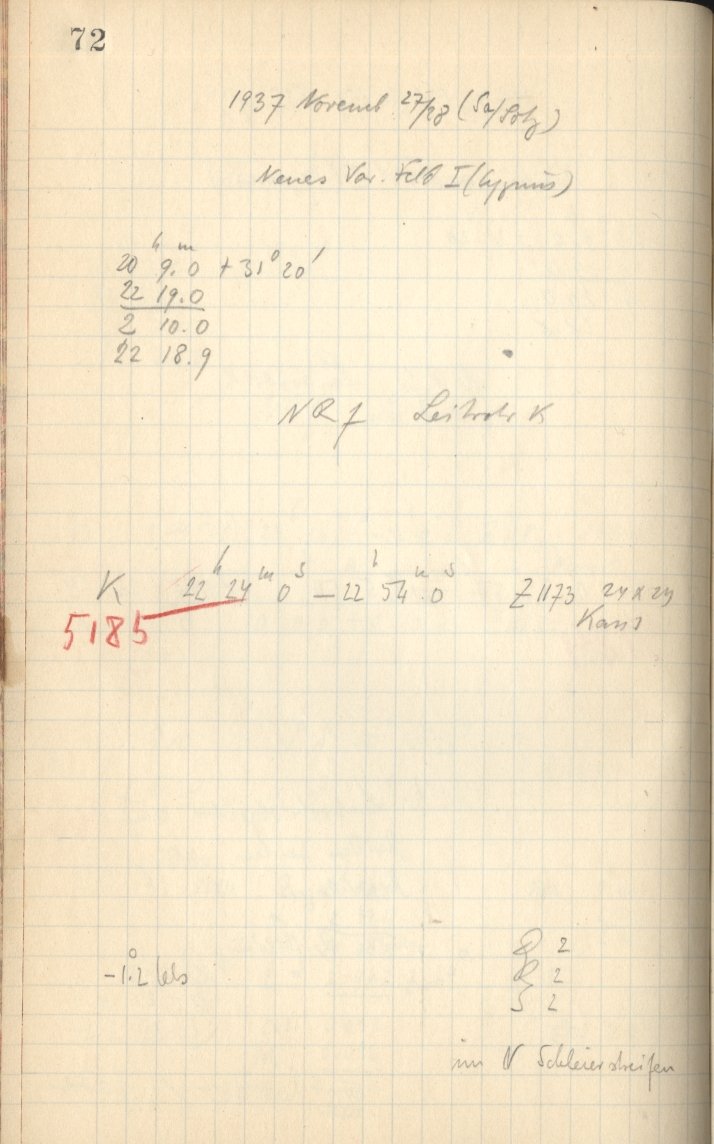 72
1937 Novemb 27/28 (Sa/So)
Neues Var. Feld I (Cygnus)
20ʰ 9.ᵐ0 + 31° 20'
22 19.0
2 10.0
22 18.9
Leitrohr K
K 22ʰ 24ᵐ 0ˢ — 22ʰ 54ᵐ.0ˢ Z 1173 24 x 24
5185
-1.°2
2
2
S 2
im N Schleierstreifen